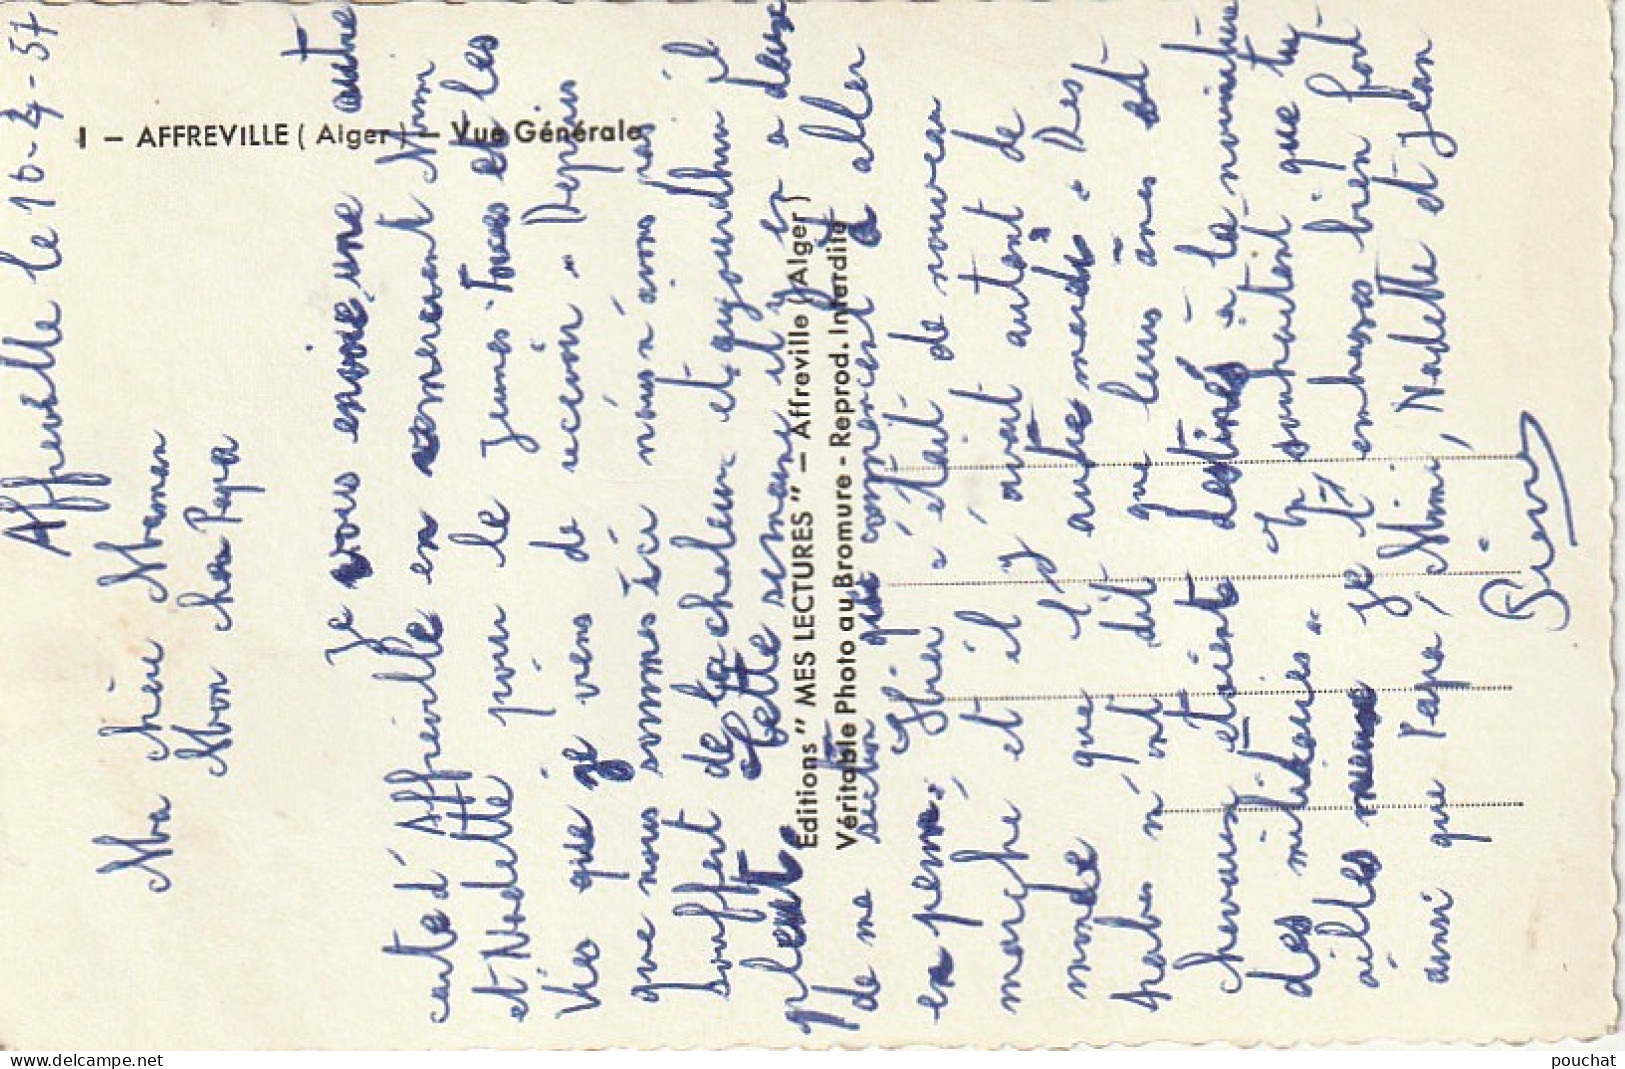 1 - AFFREVILLE ( Alger ) - Vue Générale
Editions " MES LECTURES " - Affreville ( Alger )
Véritable Photo au Bromure - Reprod. Interdite
Affreville le 10-4-57
Ma chère Maman
Mon cher Papa
Je vous envoie une autre
carte d'Affreville en remerciant Mimi
et Nadette pour le jeunes et les
que je viens de recevoir. Depuis
que nous sommes ici nous n'avons pas
souffert de la chaleur et aujourd'hui il
pleut. Cette semaine il y en a deux
de ma section qui commencent à aller
en perm. Hier c'était de nouveau
marché et il y avait autant de
monde que l'autre mardi. Des
arabes m'ont dit que leurs ânes et
chevaux étaient destinés à la nourriture
des militaires. En souhaitant que tu
ailles mieux je t'embrasses bien fort
ainsi que Papa, Mimi, Nadette et Jean
Pierre
pouchat
www.delcampe.net